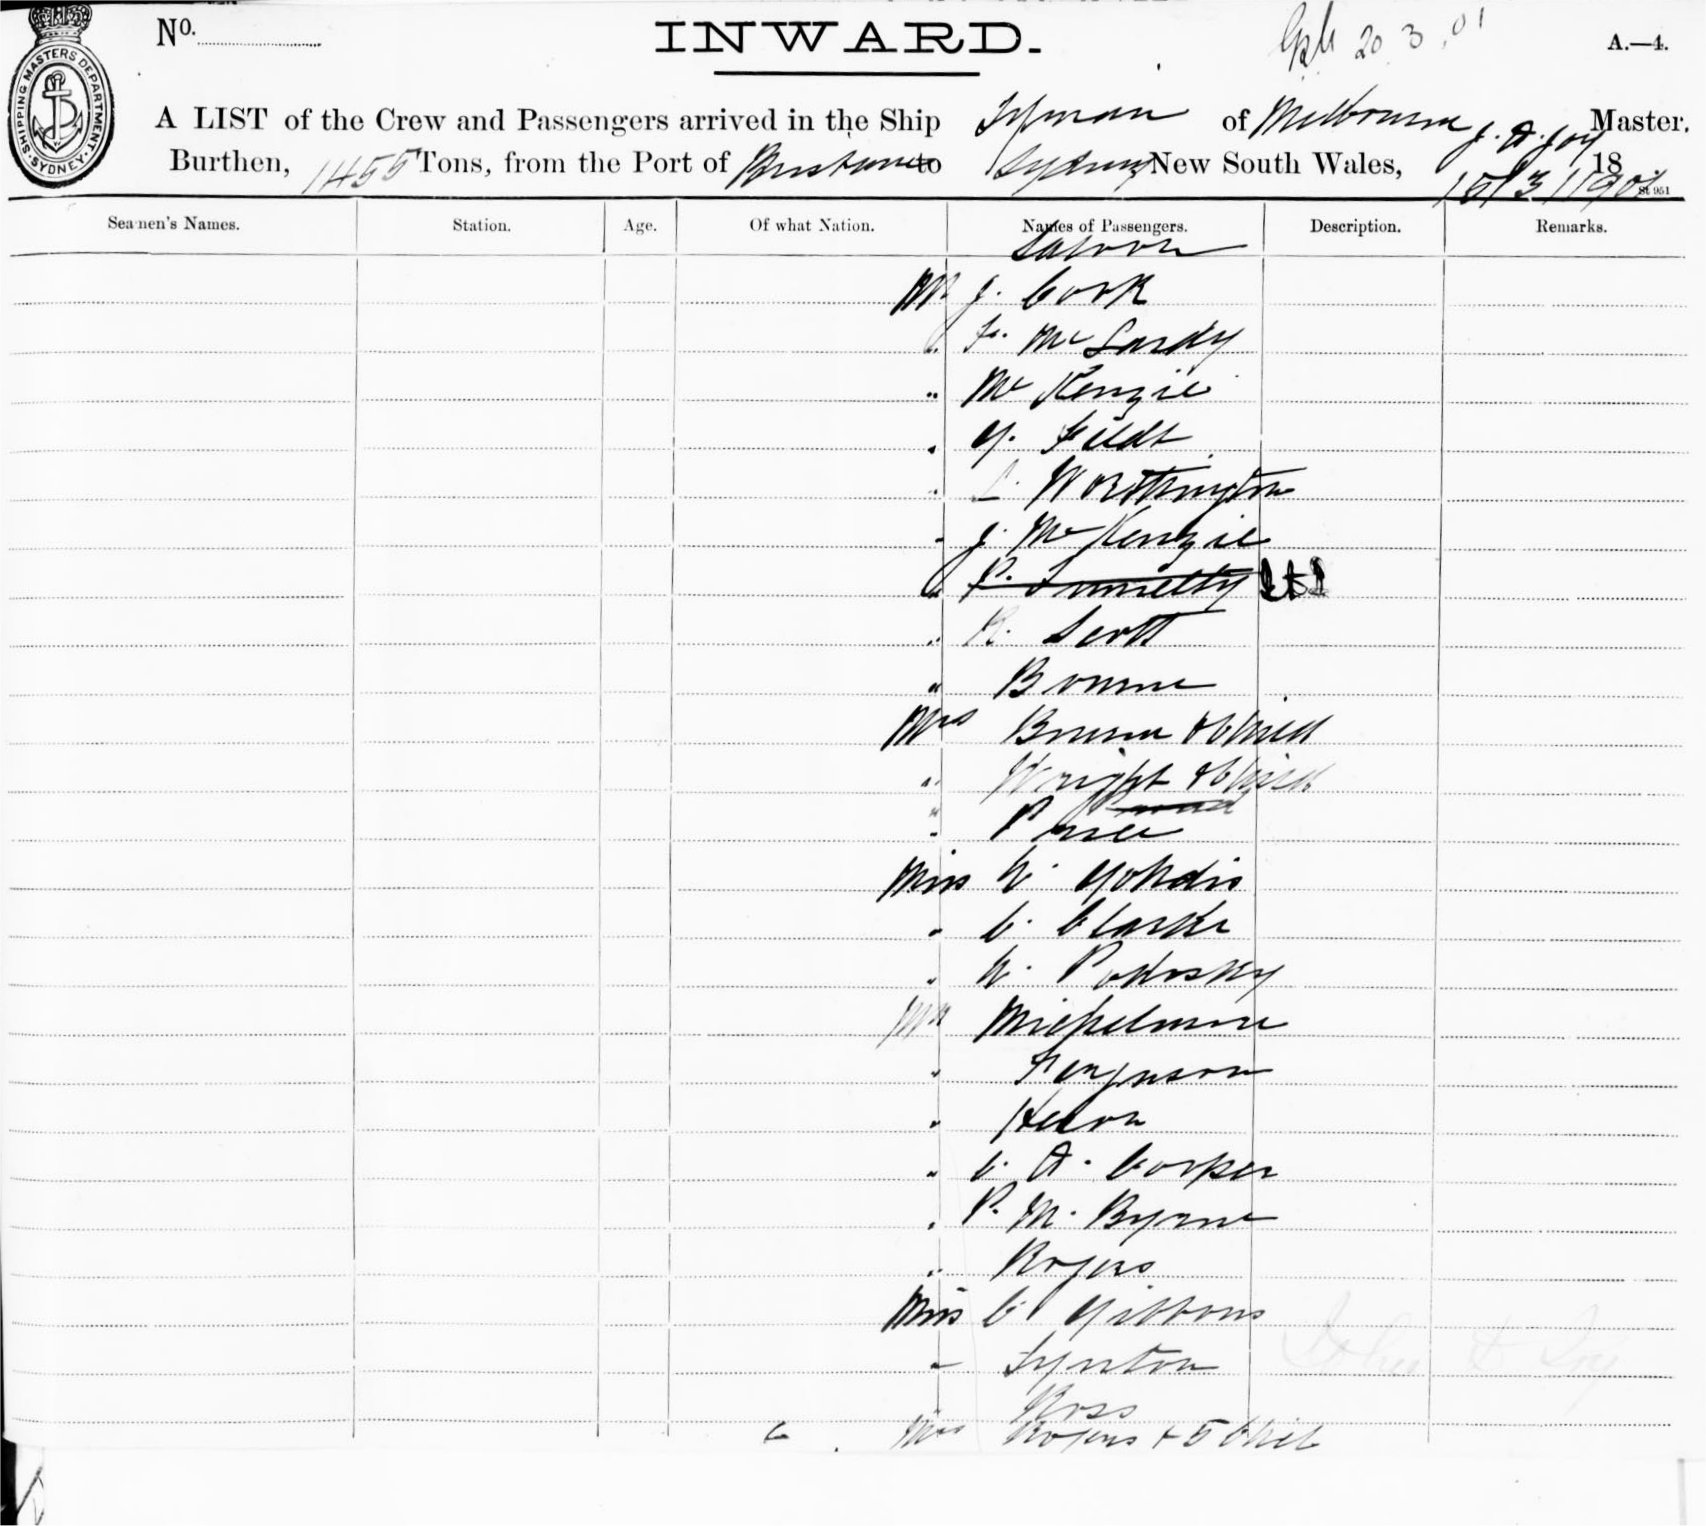 No.
INWARD.
20 3 . 01
A.—4.
SHIPPING MASTERS DEPARTMENT. SYDNEY.
A LIST of the Crew and Passengers arrived in the Ship Tyrian of Melbourne J. A. Joy Master.
Burthen, 1455 Tons, from the Port of Brisbane to Sydney New South Wales, 18
1901
St 951
Seamen's Names. Station. Age. Of what Nation. Names of Passengers. Description. Remarks.
Saloon
Mr J. Cook
" F. Mc Lardy
" Mc Kenzie
" G. Fildt
" L. Worthington
" J. McKenzie
" P.
" R. Scott
" Bourne
Mrs Bourne & Child
" Wright & Child
" Price
Miss N. Gordis
" C. Clarke
" N.
Mr Michelmore
" Ferguson
" Heron
" C. A. Cooper
" P. M. Byrne
" Rogers
Miss C Gibbons
" Lynton
Ross
Mrs Rogers + 5 Chil
John A Joy